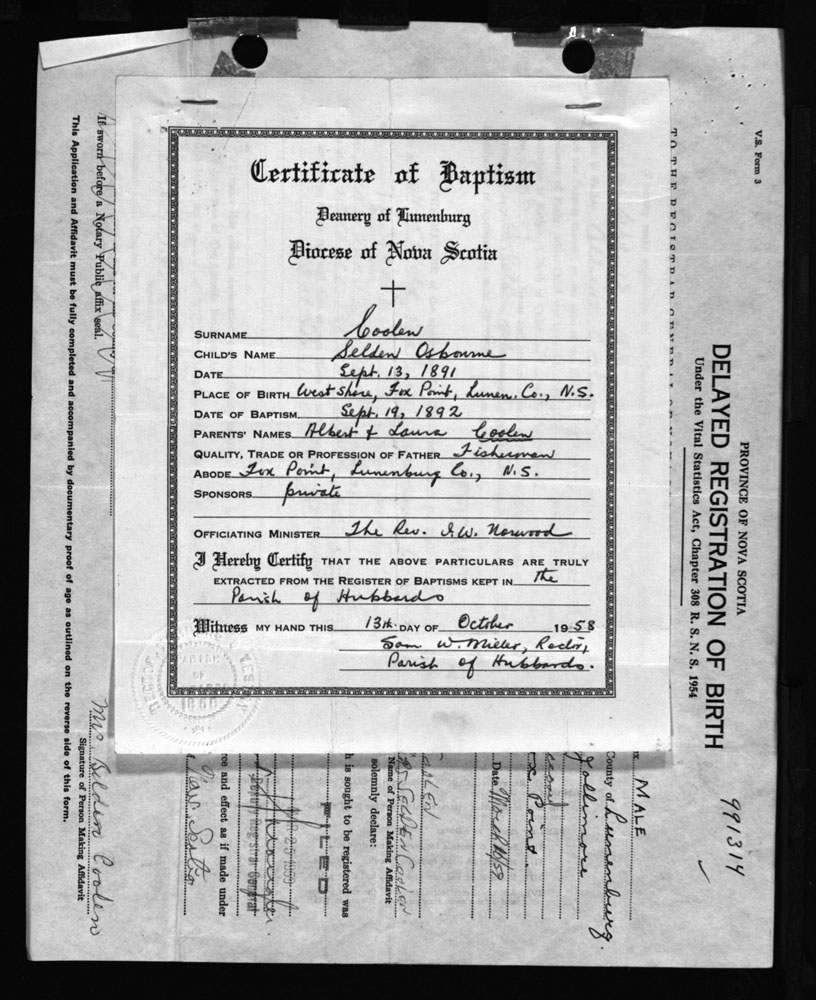 Certificate of Baptism
Deanery of Lunenburg
Diocese of Nova Scotia
SURNAME Coolen
CHILD'S NAME Selden Osbourne
DATE Sept. 13, 1891
PLACE OF BIRTH West Shore, Fox Point, Lunen. Co., N.S.
DATE OF BAPTISM Sept. 19, 1892
PARENTS' NAMES Albert & Laura Coolen
QUALITY, TRADE OR PROFESSION OF FATHER Fisherman
ABODE Fox Point, Lunenburg Co., N.S.
SPONSORS private
OFFICIATING MINISTER The Rev. I.W. Norwood
I Hereby Certify THAT THE ABOVE PARTICULARS ARE TRULY
EXTRACTED FROM THE REGISTER OF BAPTISMS KEPT IN The
Parish of Hubbards
Witness MY HAND THIS 13th. DAY OF October 1958
Sam W. Miller, Rector,
Parish of Hubbards.
V.S. Form 3
PROVINCE OF NOVA SCOTIA
DELAYED REGISTRATION OF BIRTH
Under the Vital Statistics Act, Chapter 308 R. S. N. S. 1954
991314
TO THE REGISTRAR GENERAL
MALE
County of Lunenburg.
Jollimore
Point.
Date March 16/59
Name of Person Making Affidavit
solemnly declare:
h is sought to be registered was
FILED
Deputy Registrar General
ce and effect as if made under
Nova Scotia
If sworn before a Notary Public affix seal.
Mrs Selden Coolen
Signature of Person Making Affidavit
This Application and Affidavit must be fully completed and accompanied by documentary proof of age as outlined on the reverse side of this form.